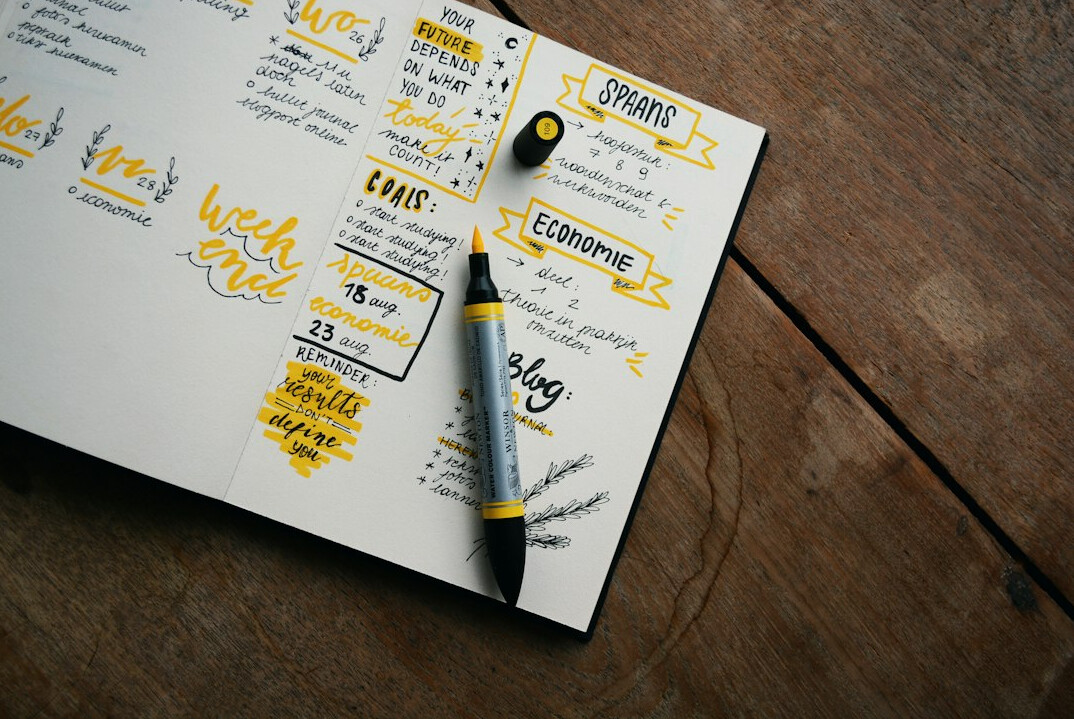 bullet
o foto's herexamen
o tekst herexamen
wo 26
* 11u
nagels laten
doen
o bullet journal
blogpost online
do 27
vr 28
o economie
Week
end
YOUR
FUTURE
DEPENDS
ON WHAT
YOU DO
today
make it
COUNT!
GOALS:
o start studying!
o start studying!
o start studying!
spaans
18 aug.
economie
23 aug.
REMINDER:
your
results
DON'T
define
you
SPAANS
→ hoofdstuk:
7 8 9
woordenschat &
werkwoorden
ECONOMIE
→ deel:
1 2
theorie in praktijk
omzetten
Blog:
HEREX
WATER COLOUR MARKER
WINSOR
NEWTON
109